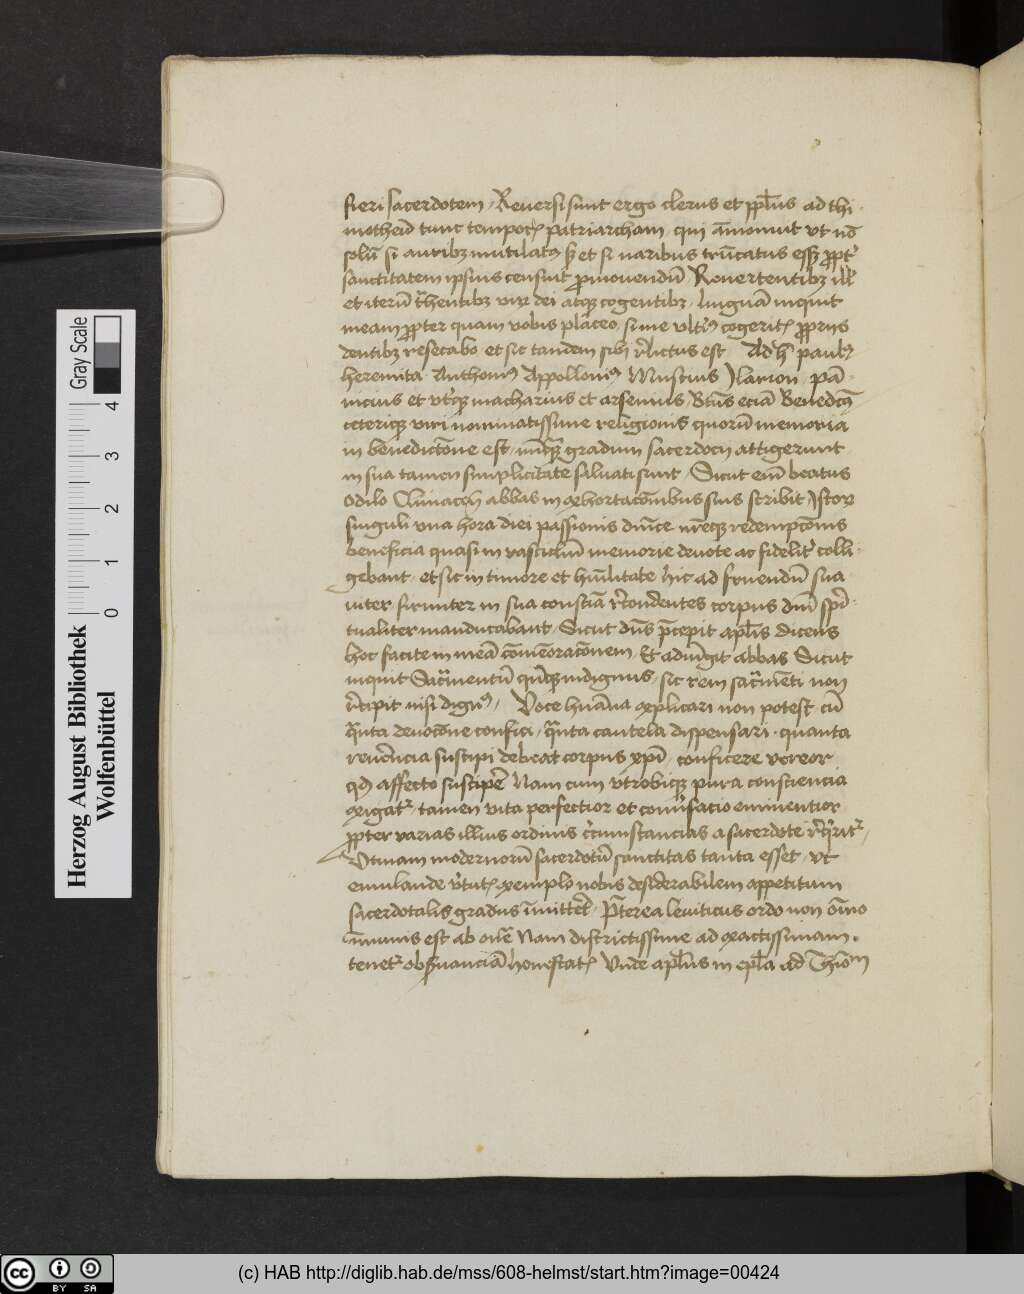 fieri sacerdotem Reuersi sunt ergo clerus et pplus ad thi
motheū tunc tempor patriarcham qui āmonuit vt nō
solū si auribz mutilatus sʒ et si naribus trūcatus essʒ ꝓpt
sanctitatem ipsius censuit ꝓmouendū Reuertentibz ill
et iterū t̄hentibz vir dei atqʒ cogentibz linguā inquit
meam ꝓpter quam vobis placeo si me vlt̄ius cogerit ꝓpriis
dentibz resecabo et sic tandem sibi r̄lictus est Ad h̄ paulus
heremita Anthonius Appollonius Muscius Ilarion pā
nicius et vt̄qʒ macharius et arsenius Btūs eciā Benedcūs
ceteriqʒ viri nominatissime religionis quorū memoria
in benedictōne est nūqʒ gradum sacerdocij attigerunt
in sua tamen simplicitate saluati sunt Sicut em̄ beatus
Odilo Cluniaceñ abbas in exhortacōnibus suis scribit Istorꝝ
singuli vna hora diei passionis diuīce nr̄eqʒ redempcōnis
beneficia quasi in vasciclum memorie deuote ac fidelit colli
gebant et sic in timore et hūilitate hic ad fruendū sua
uiter in sua consciā r̄condentes corpus dnī spī
tualiter manducabant Sicut dn̄s p̄cepit apl̄is dicens
hoc facite in meā cōmēoracōnem Et adiungit abbas Sicut
inquit Sacr̄mentū qn̄qʒ indignus sic rem sacr̄mēti non
r̄cipit nisi dignus Voce humana explicari non potest cū
q̄nta deuocōne confici q̄nta cautela dispensari quanta
reuēncia suscipi debeat corpus xp̄i conficere vereor
qd affecto suscipē Nam cum vtrobiqʒ pura consciencia
exigat tamen vita perfectior et conūsacio eminentior
ꝓpter varias illius ordinis circumstancias a sacerdote r̄q̄rit
Vtinam modernorū sacerdotū sanctitas tanta esset vt
emulande v̄tut exemplo nobis desiderabilem appetitum
sacerdotalis gradus īmitteret P̄terea leuiticus ordo non om̄o
īmunis est ab on̄e Nam districtissime ad exactissimam
tenet obs̄uanciā honestat Vnde apl̄us in epl̄a ad Thiom
Herzog August Bibliothek
Wolfenbüttel
Gray Scale
0 1 2 3 4
BY SA
(c) HAB http://diglib.hab.de/mss/608-helmst/start.htm?image=00424